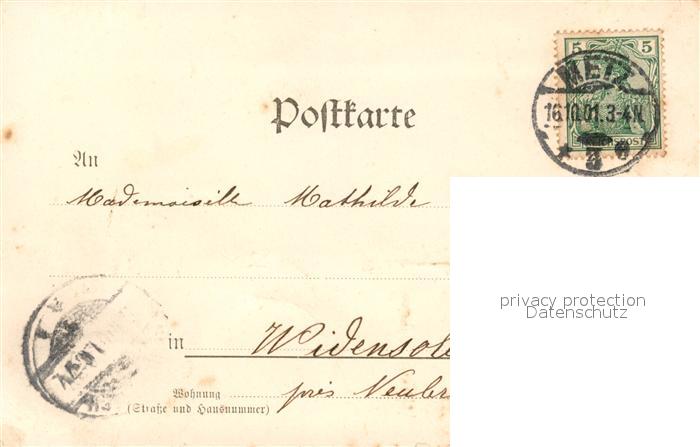 5 5
METZ
Postkarte
16.10.01.3-4N.
REICHSPOST
* 3 e
An
Mademoiselle Mathilde
privacy protection
Datenschutz
in Widensole
Wohnung près Neubr
(Straße und Hausnummer)